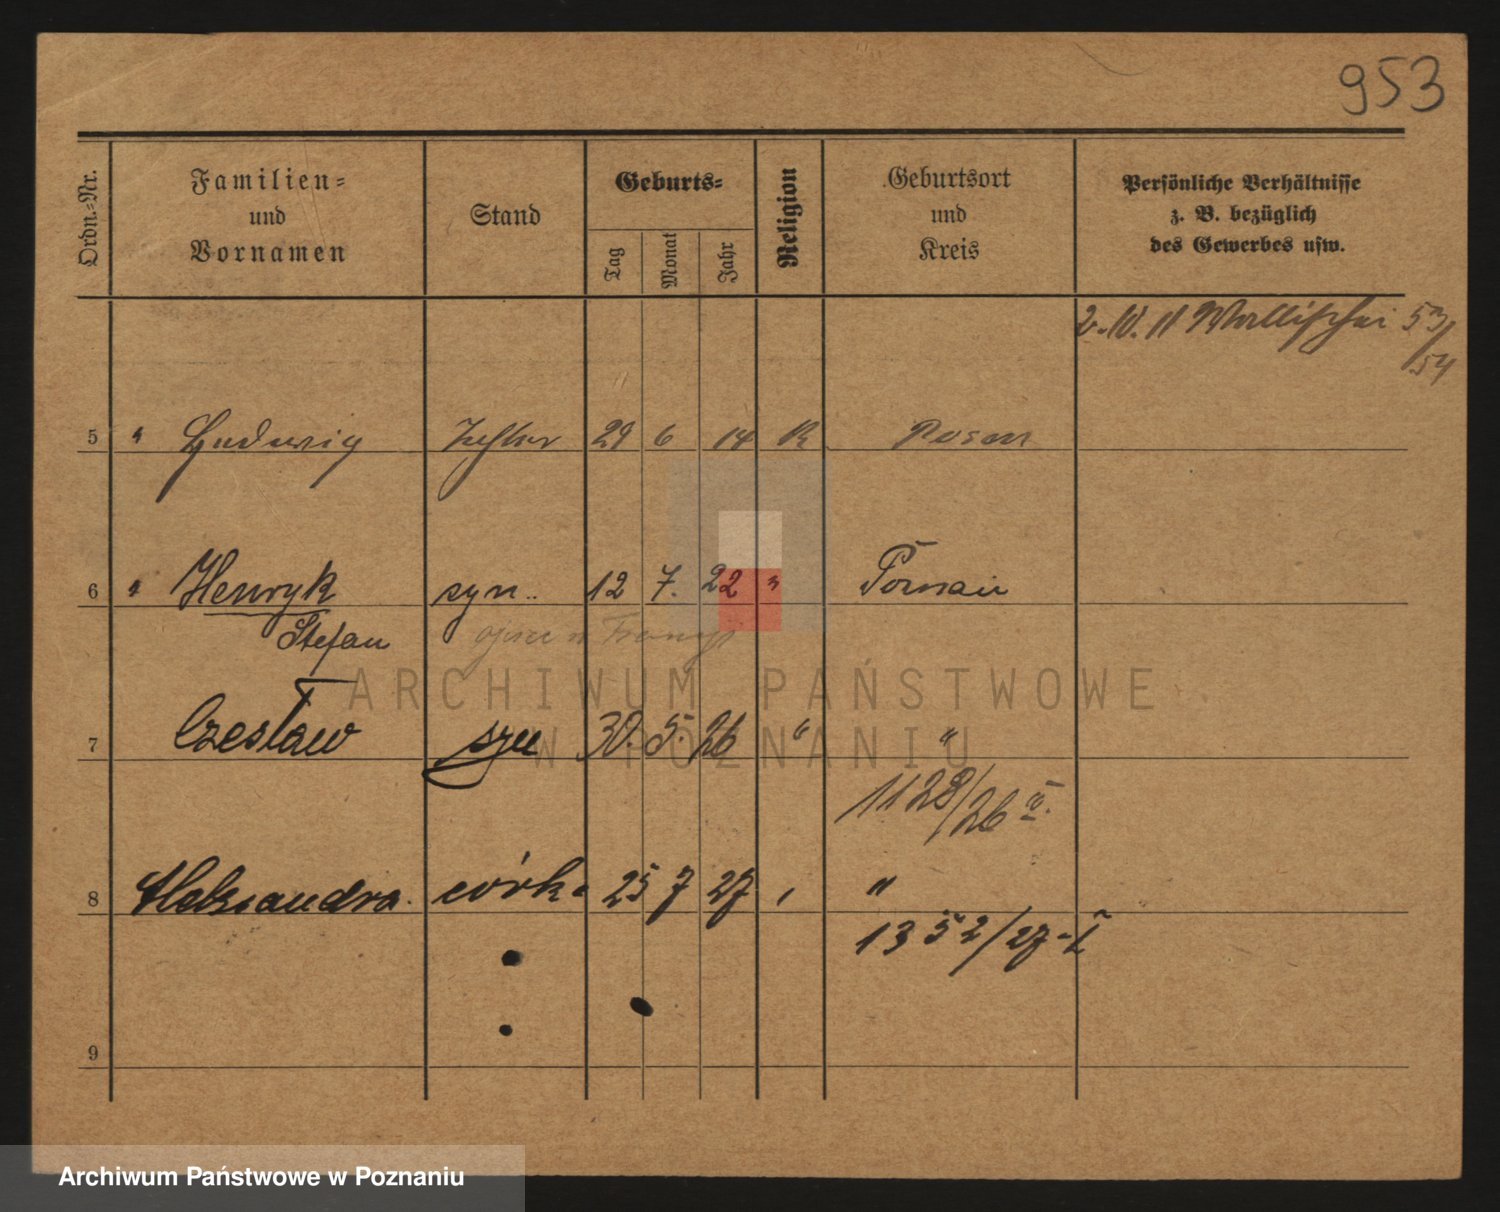 953
Ordn.-Nr.
Familien-
und
Vornamen
Stand
Geburts-
Tag
Monat
Jahr
Religion
Geburtsort
und
Kreis
Persönliche Verhältnisse
z. B. bezüglich
des Gewerbes usw.
11 Wallischei 53/
54
5 " Ludwig 29 6 14 R Posen
6 " Henryk syn 12 7. 22 " Poznań
Stefan
7 Czesław syn 30. 5. 26 " "
1128/26
8 Aleksandra córka 25 7 27 , "
1352/27-I
9
ARCHIWUM PAŃSTWOWE
W POZNANIU
Archiwum Państwowe w Poznaniu